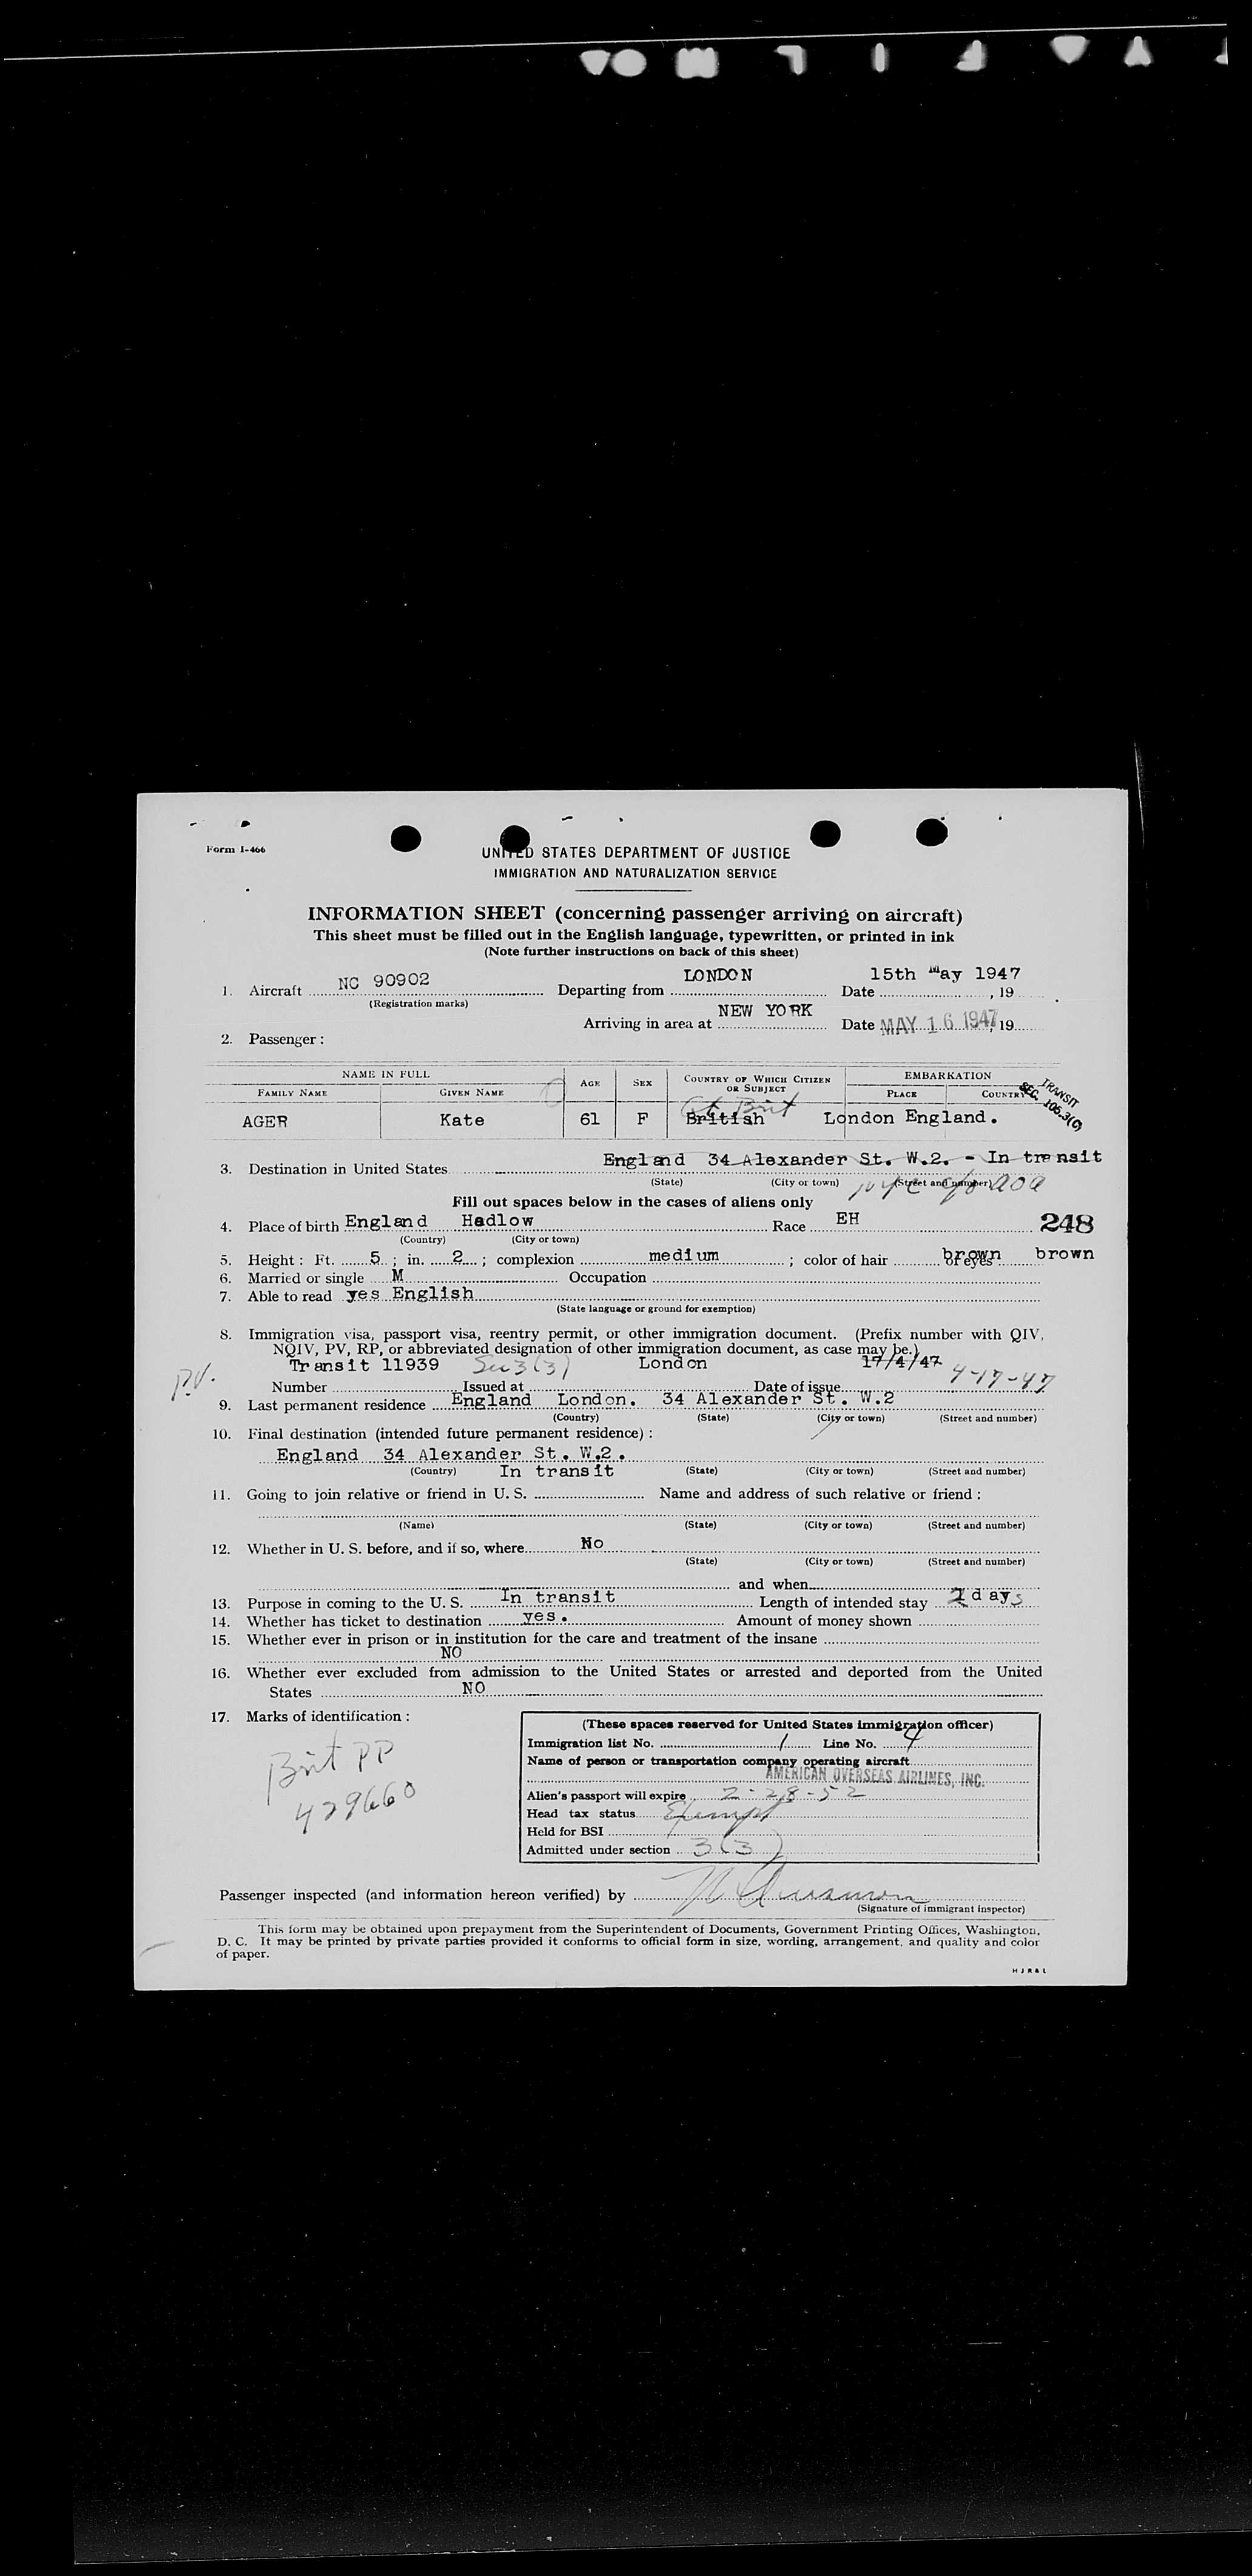 Form I-466
UNITED STATES DEPARTMENT OF JUSTICE
IMMIGRATION AND NATURALIZATION SERVICE
INFORMATION SHEET (concerning passenger arriving on aircraft)
This sheet must be filled out in the English language, typewritten, or printed in ink
(Note further instructions on back of this sheet)
1. Aircraft NC 90902 Departing from LONDON Date 15th May 1947, 19
(Registration marks)
Arriving in area at NEW YORK Date MAY 16 1947, 19
2. Passenger:
NAME IN FULL AGE SEX COUNTRY OF WHICH CITIZEN OR SUBJECT EMBARKATION
FAMILY NAME GIVEN NAME PLACE COUNTRY
TRANSIT SEC. 106.3(C)
Gt. Brit
AGER Kate 61 F British London England.
3. Destination in United States England 34 Alexander St. W.2. - In transit
(State) (City or town) (Street and number)
Fill out spaces below in the cases of aliens only
4. Place of birth England Hadlow Race EH 248
(Country) (City or town)
5. Height: Ft. 5; in. 2; complexion medium; color of hair brown of eyes brown
6. Married or single M Occupation
7. Able to read yes English
(State language or ground for exemption)
8. Immigration visa, passport visa, reentry permit, or other immigration document. (Prefix number with QIV,
NQIV, PV, RP, or abbreviated designation of other immigration document, as case may be.)
P.V. Transit 11939 Sec 3(3) London 17/4/47 4-17-47
Number Issued at Date of issue
9. Last permanent residence England London. 34 Alexander St. W.2
(Country) (State) (City or town) (Street and number)
10. Final destination (intended future permanent residence):
England 34 Alexander St. W.2.
(Country) In transit (State) (City or town) (Street and number)
11. Going to join relative or friend in U. S. Name and address of such relative or friend:
(Name) (State) (City or town) (Street and number)
12. Whether in U. S. before, and if so, where No
(State) (City or town) (Street and number)
and when
13. Purpose in coming to the U. S. In transit Length of intended stay 2 days
14. Whether has ticket to destination yes. Amount of money shown
15. Whether ever in prison or in institution for the care and treatment of the insane
NO
16. Whether ever excluded from admission to the United States or arrested and deported from the United
States NO
17. Marks of identification:
Brit PP
429660
(These spaces reserved for United States immigration officer)
Immigration list No. 1 Line No. 4
Name of person or transportation company operating aircraft
AMERICAN OVERSEAS AIRLINES, INC.
Alien's passport will expire 2-28-52
Head tax status Exempt
Held for BSI
Admitted under section 3(3)
Passenger inspected (and information hereon verified) by
(Signature of immigrant inspector)
This form may be obtained upon prepayment from the Superintendent of Documents, Government Printing Offices, Washington,
D. C. It may be printed by private parties provided it conforms to official form in size, wording, arrangement, and quality and color
of paper.
H J R & L